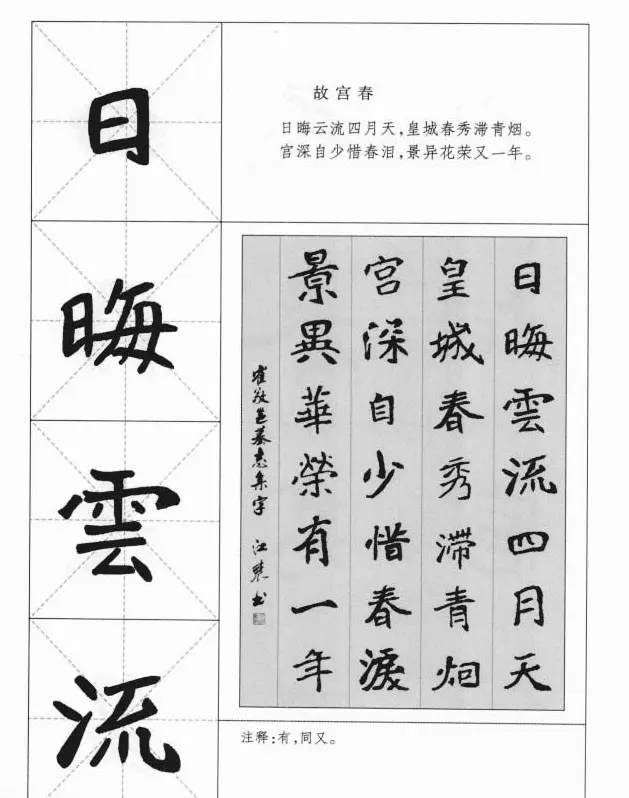 日
晦
雲
流
故宫春
日晦云流四月天，皇城春秀滞青烟。
宫深自少惜春泪，景异花荣又一年。
日晦雲流四月天
皇城春秀滯青烟
宮深自少惜春淚
景異華榮有一年
崔敬邕墓志集字
注释：有，同又。